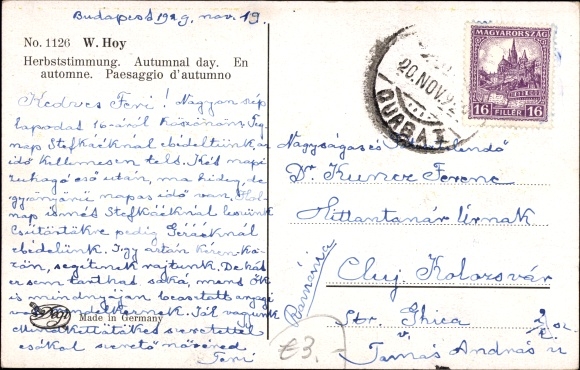 Budapest 1929. nov. 19.
No. 1126 W. Hoy
Herbststimmung. Autumnal day. En
automne. Paesaggio d'autumno
Kedves Feri! Nagyon szép
lapodat 16-áról köszönöm. Teg-
nap Stefkáéknál ebédeltünk, az
idő kellemesen telt. Két napi
zuhogó eső után, ma hideg, de
gyönyörű napos idő van. Hol-
nap ismét Stefkáéknál leszünk
Csütörtökre pedig
ebédelünk. Így aztán
segítenek rajtunk. De hát
ez sem tarthat soká, mert ők
is mindnyájan
Jól vagyunk
szeretettel
csókol szerető nővéred
Teri
Made in Germany
MAGYARORSZÁG
16 FILLÉR 16
20.NOV.92
Nagyságos és
Dr. Kuncz Ferenc
Hittantanár Úrnak
Románia
Cluj Kolozsvár
Str. Ghica 2/sz.
v.
Tamás András u
€3.-